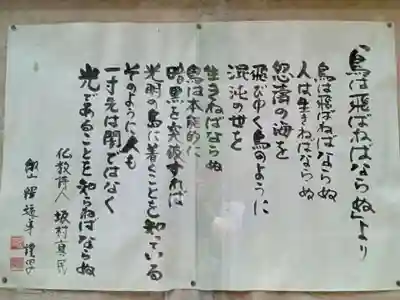 「鳥は飛ばねばならぬ」より
鳥は飛ばねばならぬ
人は生きねばならぬ
怒濤の海を
飛びゆく鳥のように
混沌の世を
生きねばならぬ
鳥は本能的に
暗黒を突破すれば
光明の島に着くことを知っている
そのように人も
一寸先は闇ではなく
光であることを知らねばならぬ
仏教詩人 坂村真民